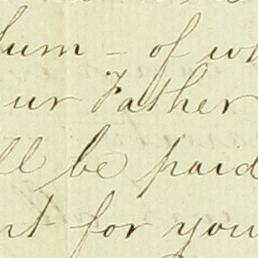 sum - of wh
ur Father
ll be paid
nt for you